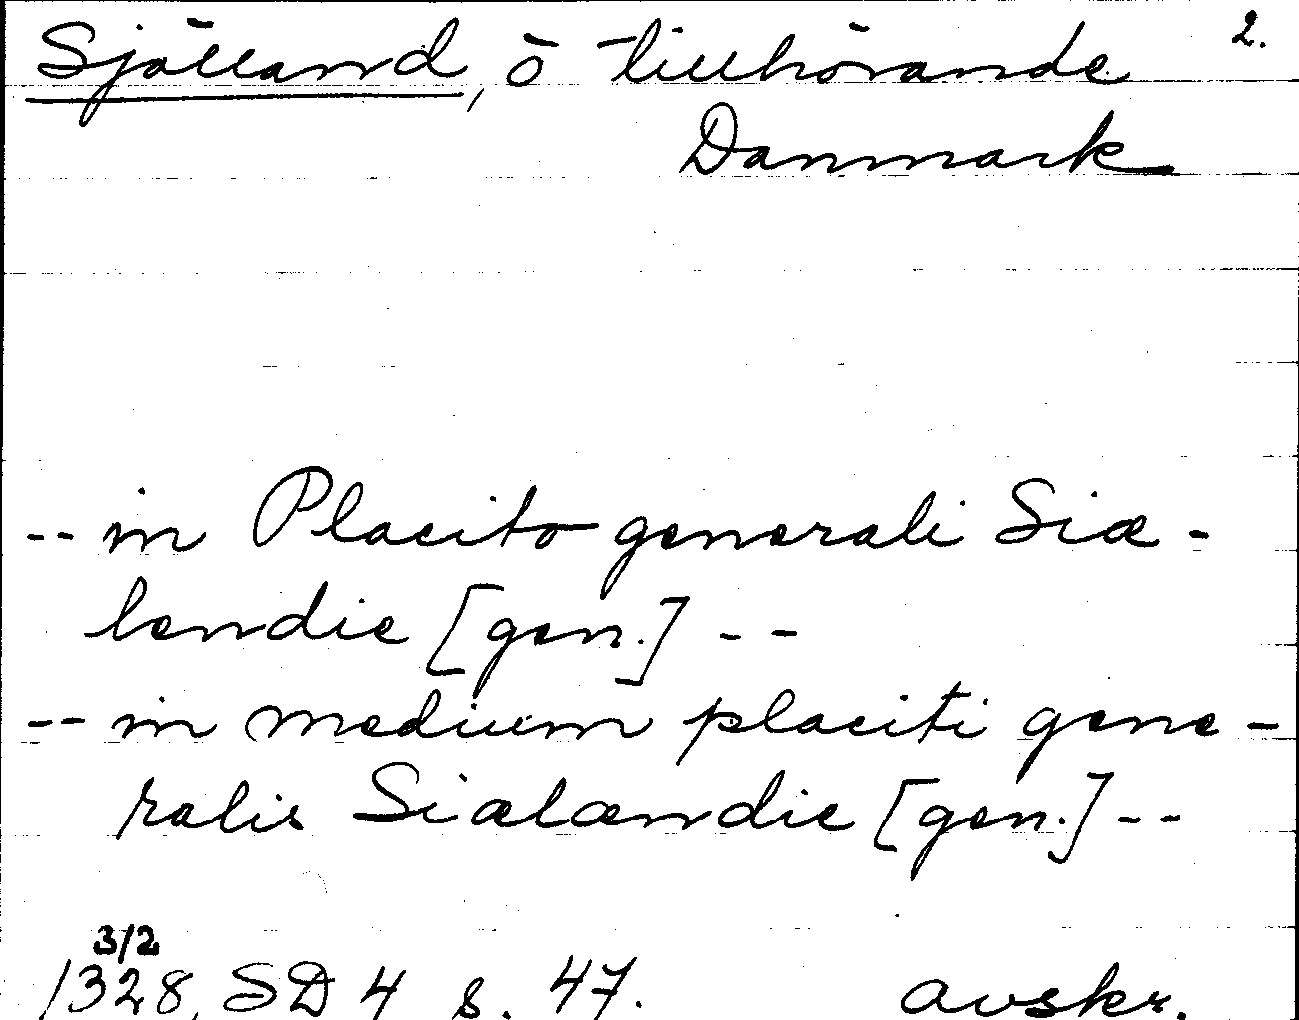 Sjålland, ö tillhörande 2.
Danmark
-- in Placito generali Siæ-
lendie [gen.] --
-- in medium placiti gene-
ralis Siælændie [gen.] --
3/2
1328, SD 4 s. 47. avskr.